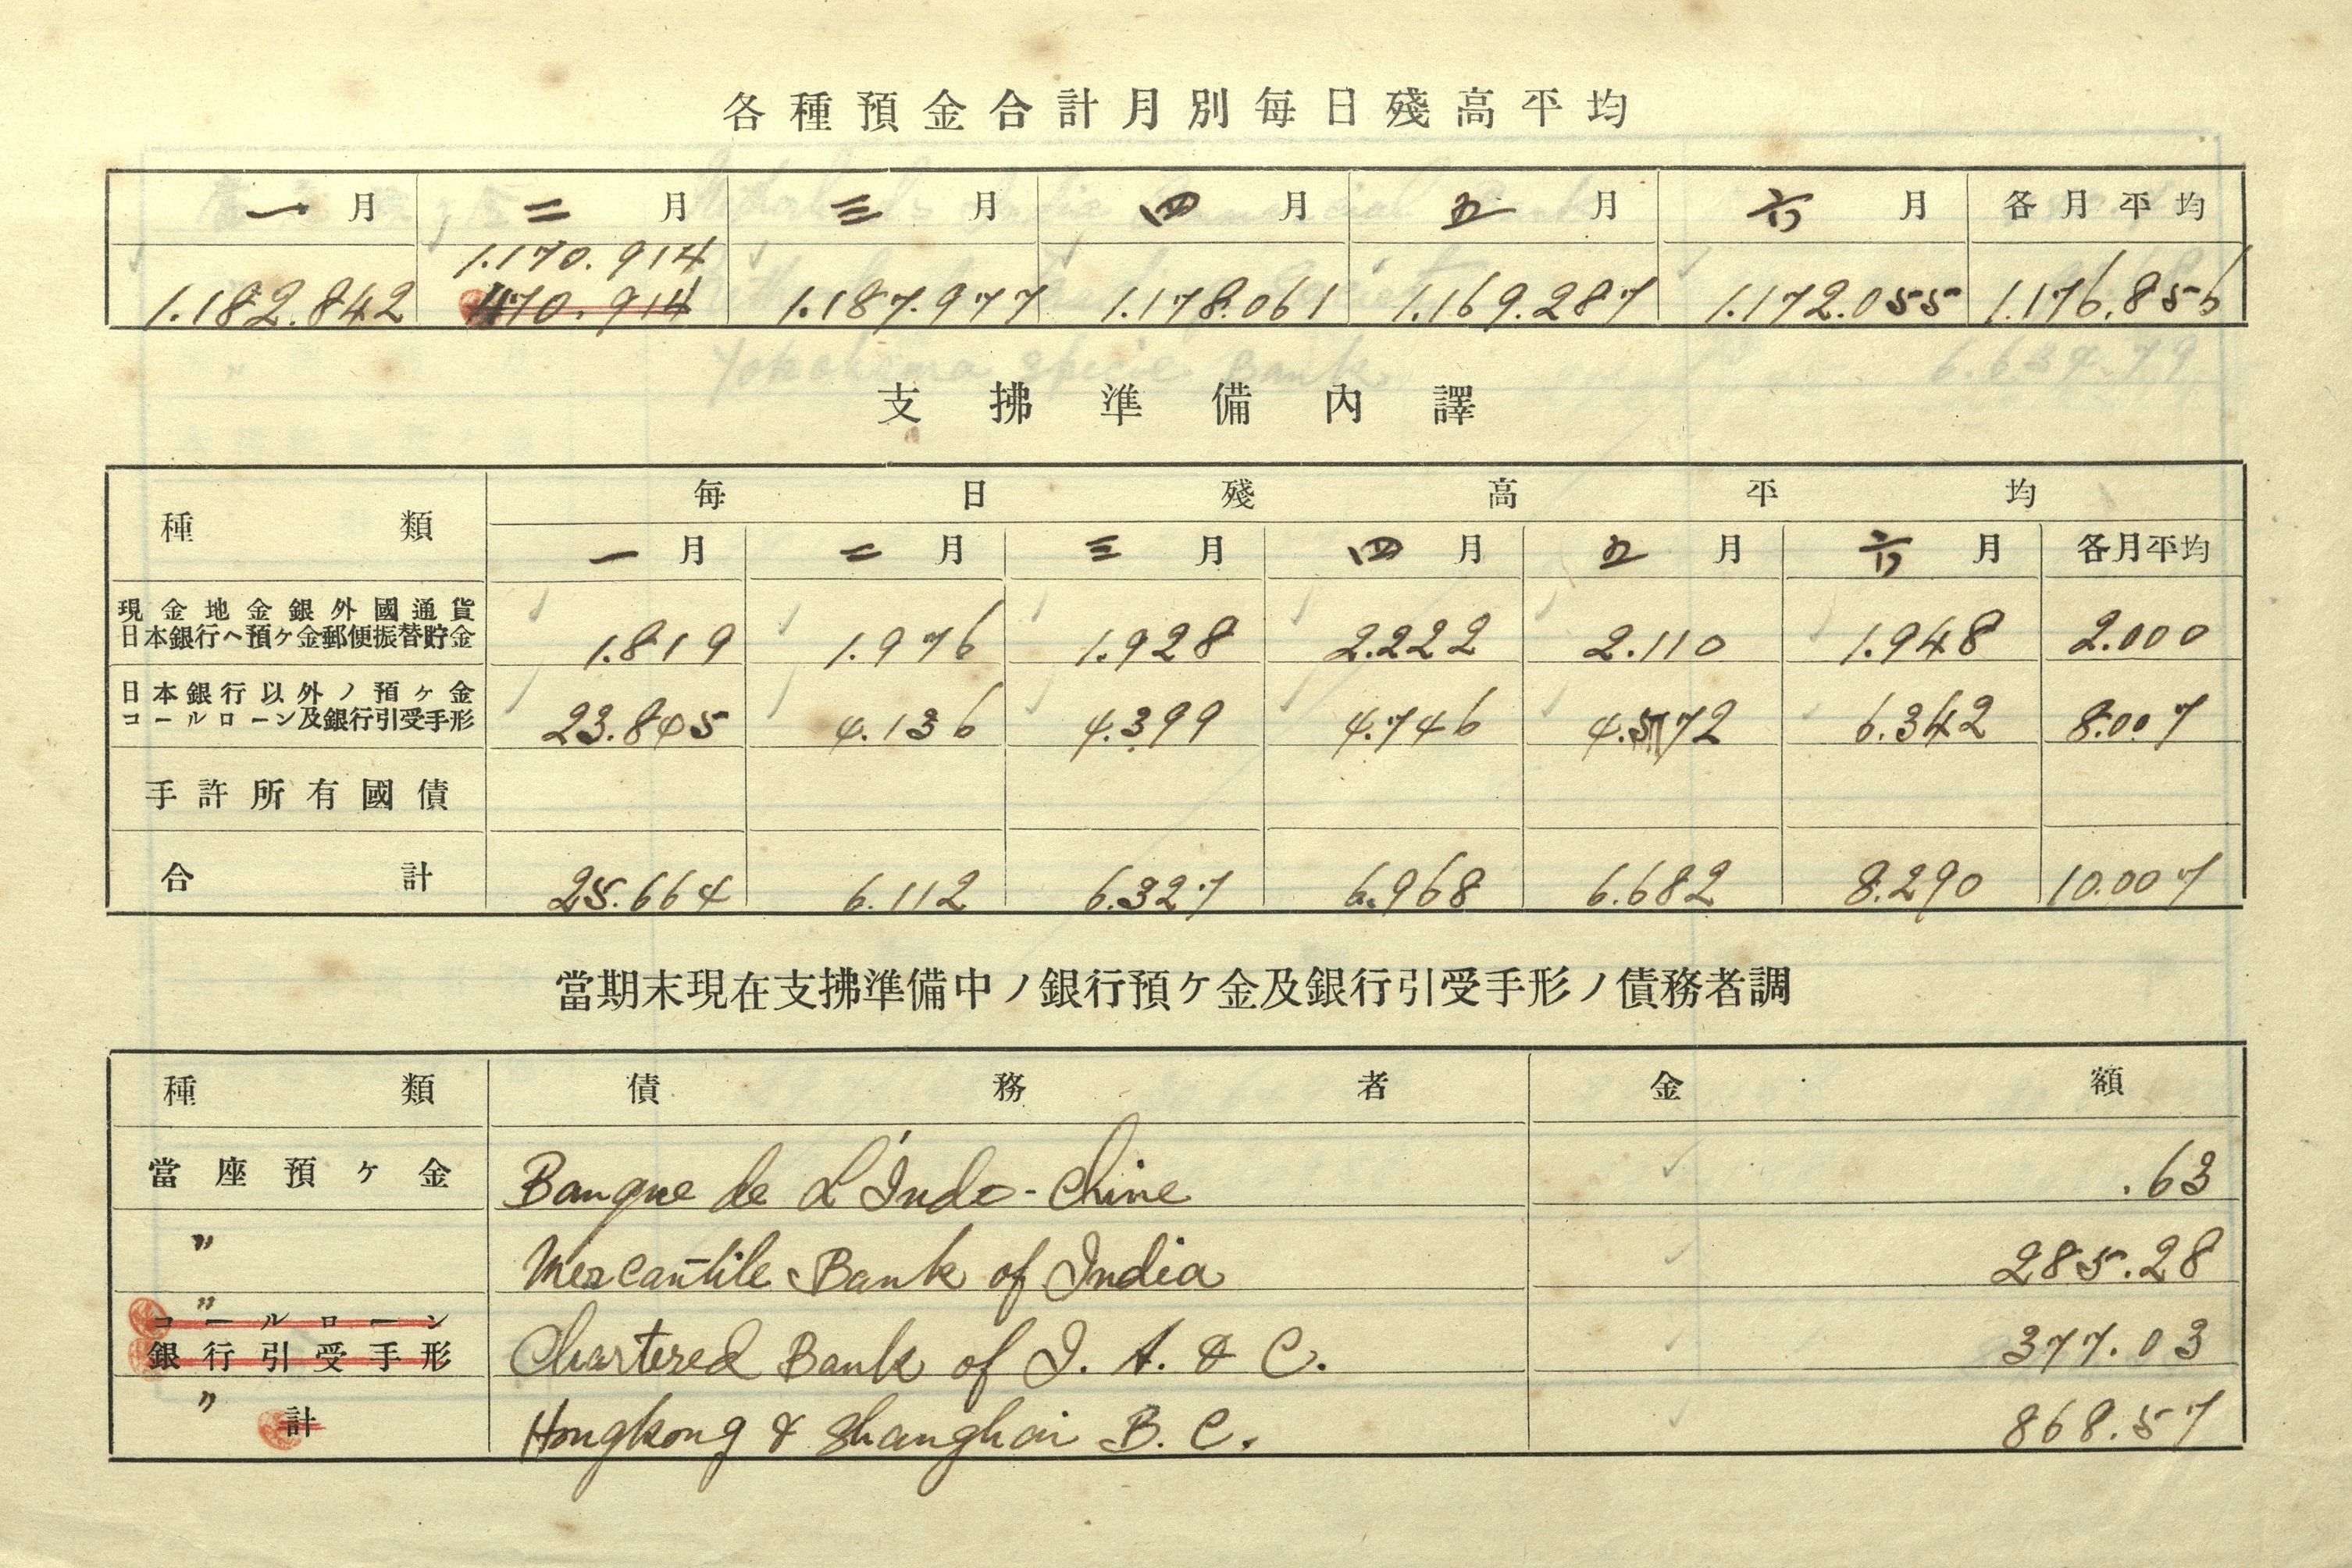 各種預金合計月別每日殘高平均
一月 二月 三月 四月 五月 六月 各月平均
1.170.914
1.182.842 470.914 1.187.977 1.178.061 1.169.287 1.172.055 1.176.856
支拂準備內譯
種類 每日殘高平均
一月 二月 三月 四月 五月 六月 各月平均
現金地金銀外國通貨
日本銀行ヘ預ヶ金郵便振替貯金 1.819 1.976 1.928 2.222 2.110 1.948 2.000
日本銀行以外ノ預ヶ金
コールローン及銀行引受手形 23.845 4.136 4.399 4.746 4.572 6.342 8.007
手許所有國債
合計 25.664 6.112 6.327 6.968 6.682 8.290 10.007
當期末現在支拂準備中ノ銀行預ケ金及銀行引受手形ノ債務者調
種類 債務者 金額
當座預ヶ金 Banque de L'Indo-Chine .63
〃 Mercantile Bank of India 285.28
〃
コールローン
銀行引受手形 Chartered Bank of I. A. & C. 377.03
〃
計 Hongkong & Shanghai B. C. 868.57